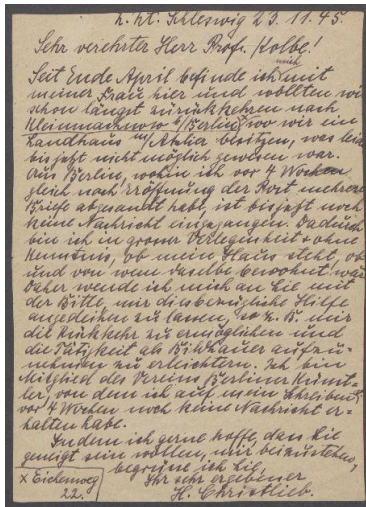 z. Zt. Schleswig 23.11.45.
Sehr verehrter Herr Prof. Kolbe!
Seit Ende April befinde ich mich mit
meiner Frau hier und wollten wir
schon längst zurückkehren nach
Kleinmachnow /Berlin x wo wir ein
Landhaus m/ Atelier besitzen, was leider
bis jetzt nicht möglich gewesen war.
Aus Berlin, wohin ich vor 4 Wochen
gleich nach Eröffnung der Post mehrere
Briefe abgesandt habe, ist bis jetzt noch
keine Nachricht eingegangen. Dadurch
bin ich in grosser Verlegenheit & ohne
Kenntnis, ob mein Haus steht, ob
und von wem dasselbe bewohnt war.
Daher wende ich mich an Sie mit
der Bitte, mir diesbezügliche Hilfe
angedeihen zu lassen, so z. B. mir
die Rückkehr zu ermöglichen und
die Tätigkeit als Bildhauer aufzu-
nehmen zu erleichtern. Ich bin
Mitglied des Vereins Berliner Künst-
ler, von dem ich auf mein Schreiben
vor 4 Wochen noch keine Nachricht er-
halten habe.
Indem ich gerne hoffe, dass Sie
geneigt sein wollen, mir beizustehen,
begrüsse ich Sie,
Ihr sehr ergebener
H. Christlieb.
x Eichenweg
22.